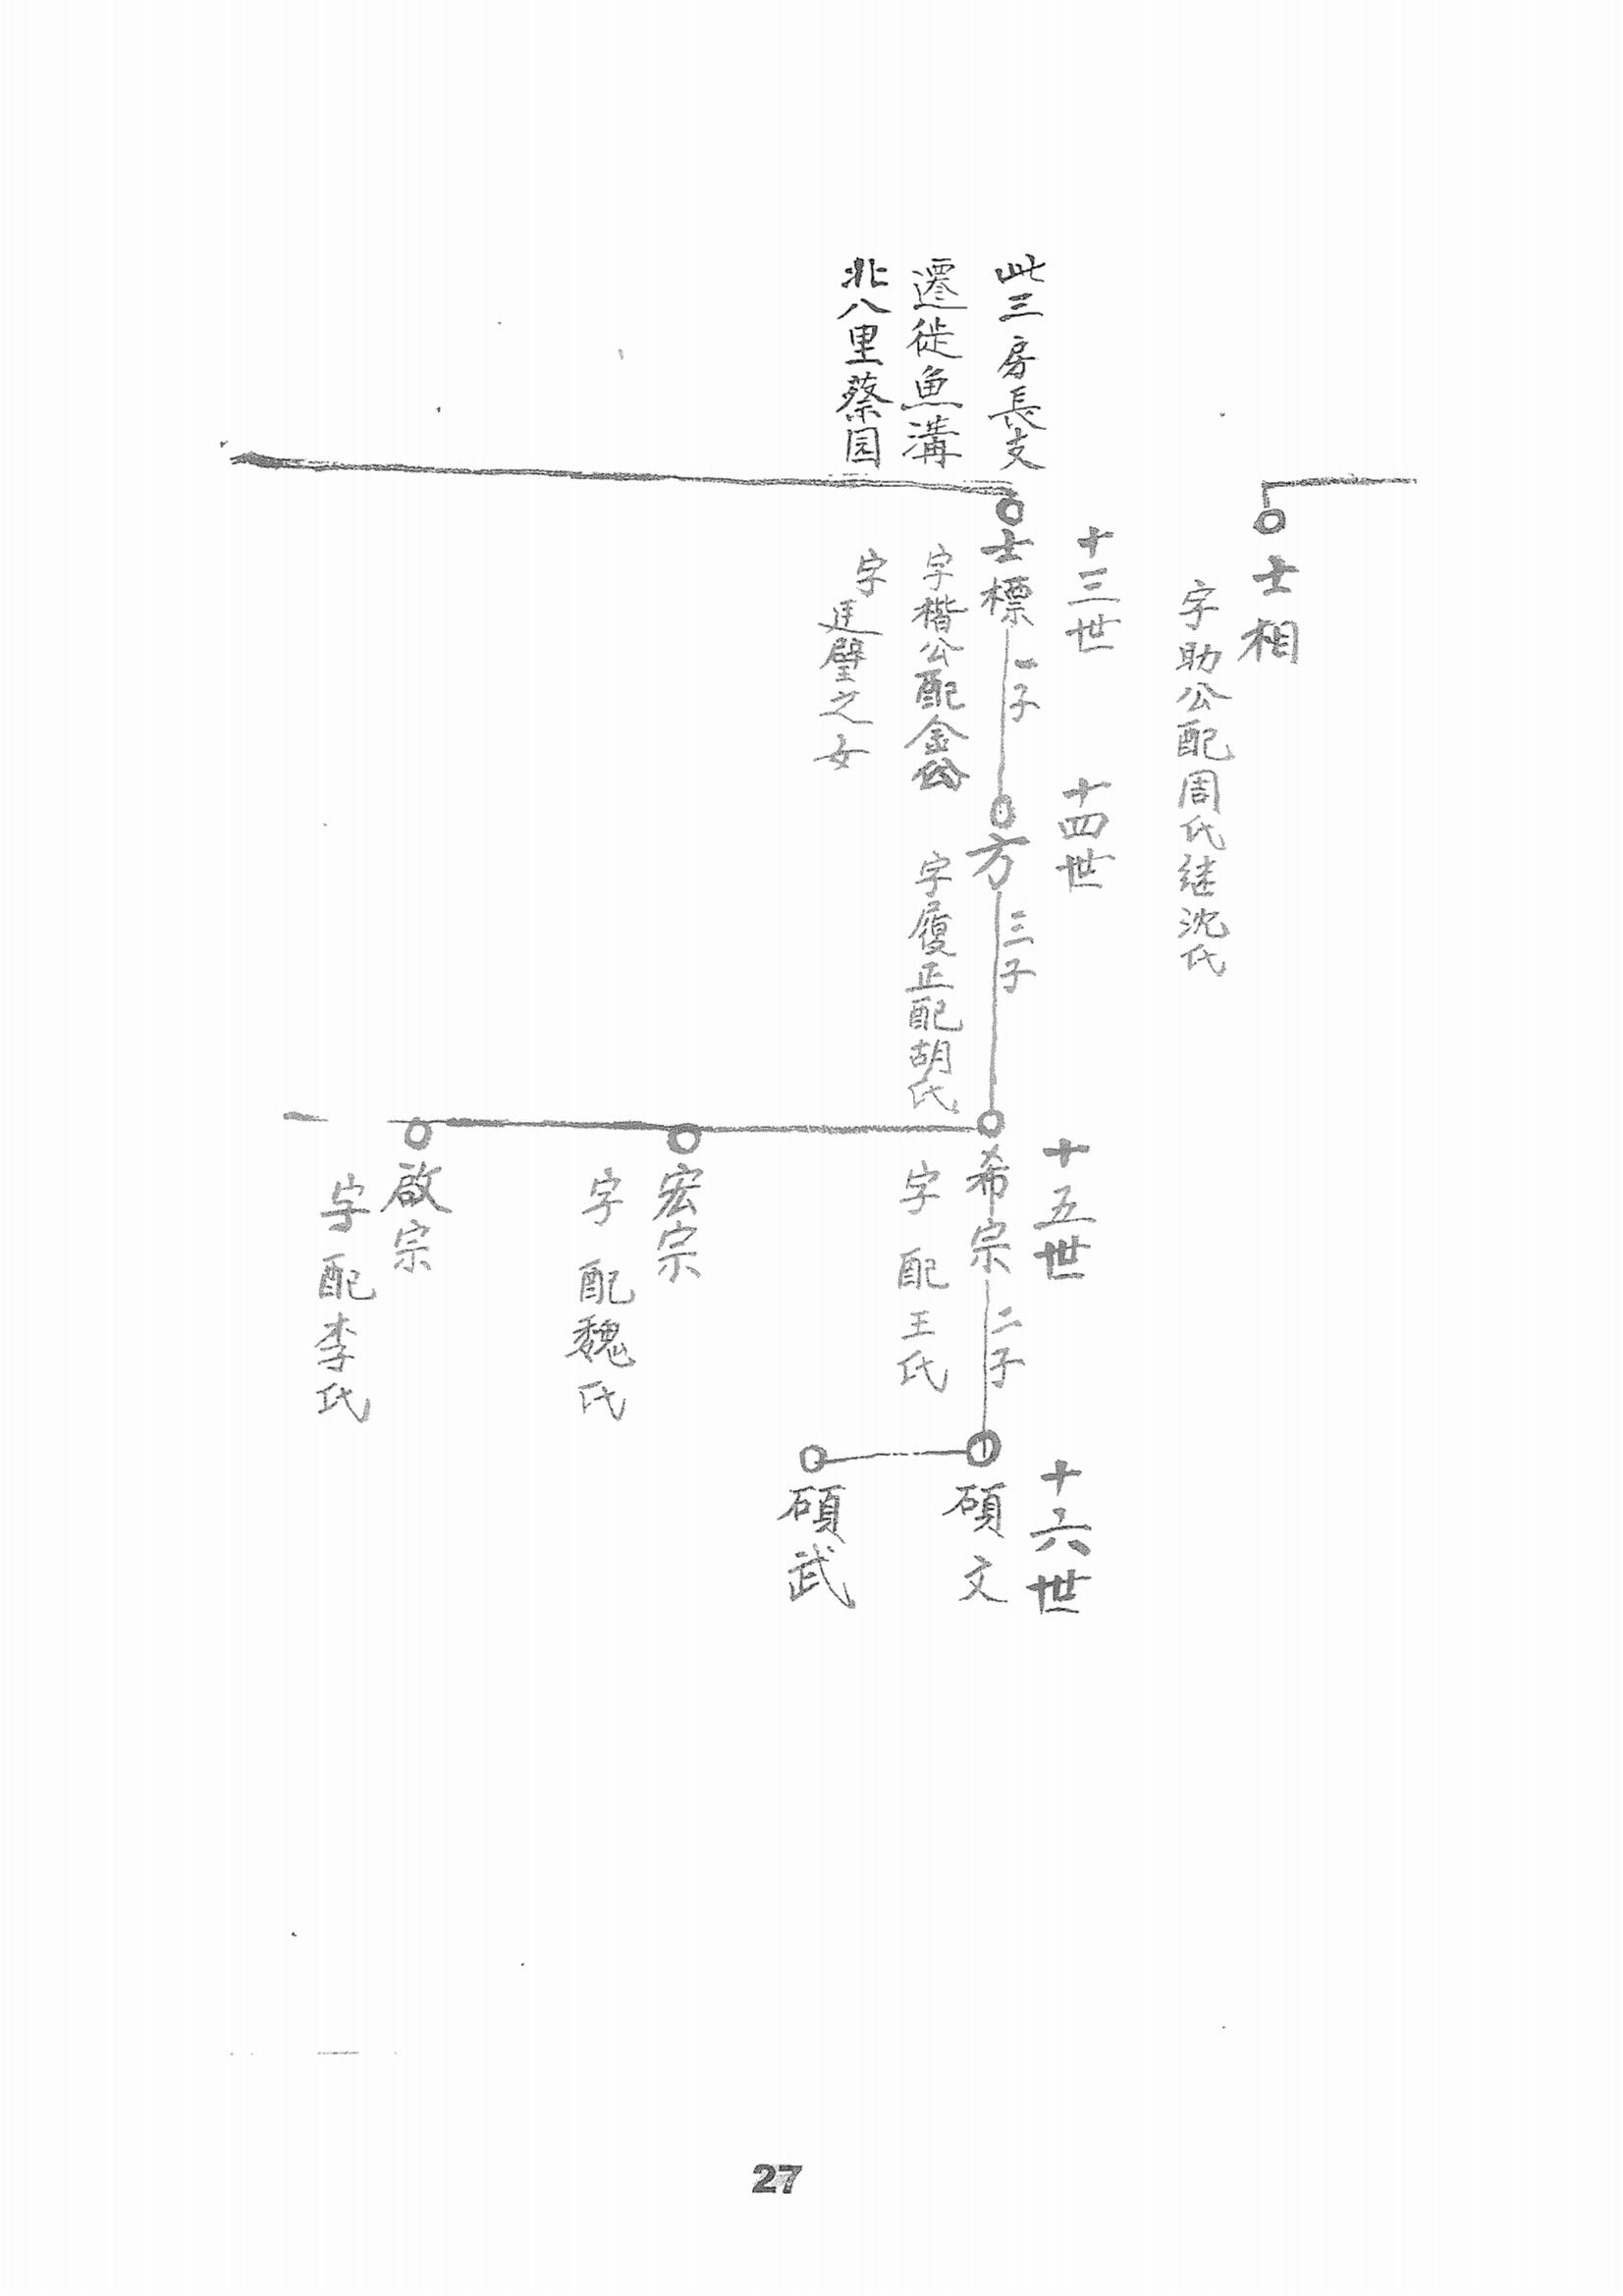 士相
字助公配周氏継沈氏
此三房長支
遷徙魚溝
北八里蔡园
十三世
士標
一子
字楷公配金公
字廷璧之女
十四世
方
三子
字履正配胡氏
十五世
希宗
二子
字 配王氏
宏宗
字 配魏氏
啟宗
字 配李氏
十六世
碩文
碩武
27